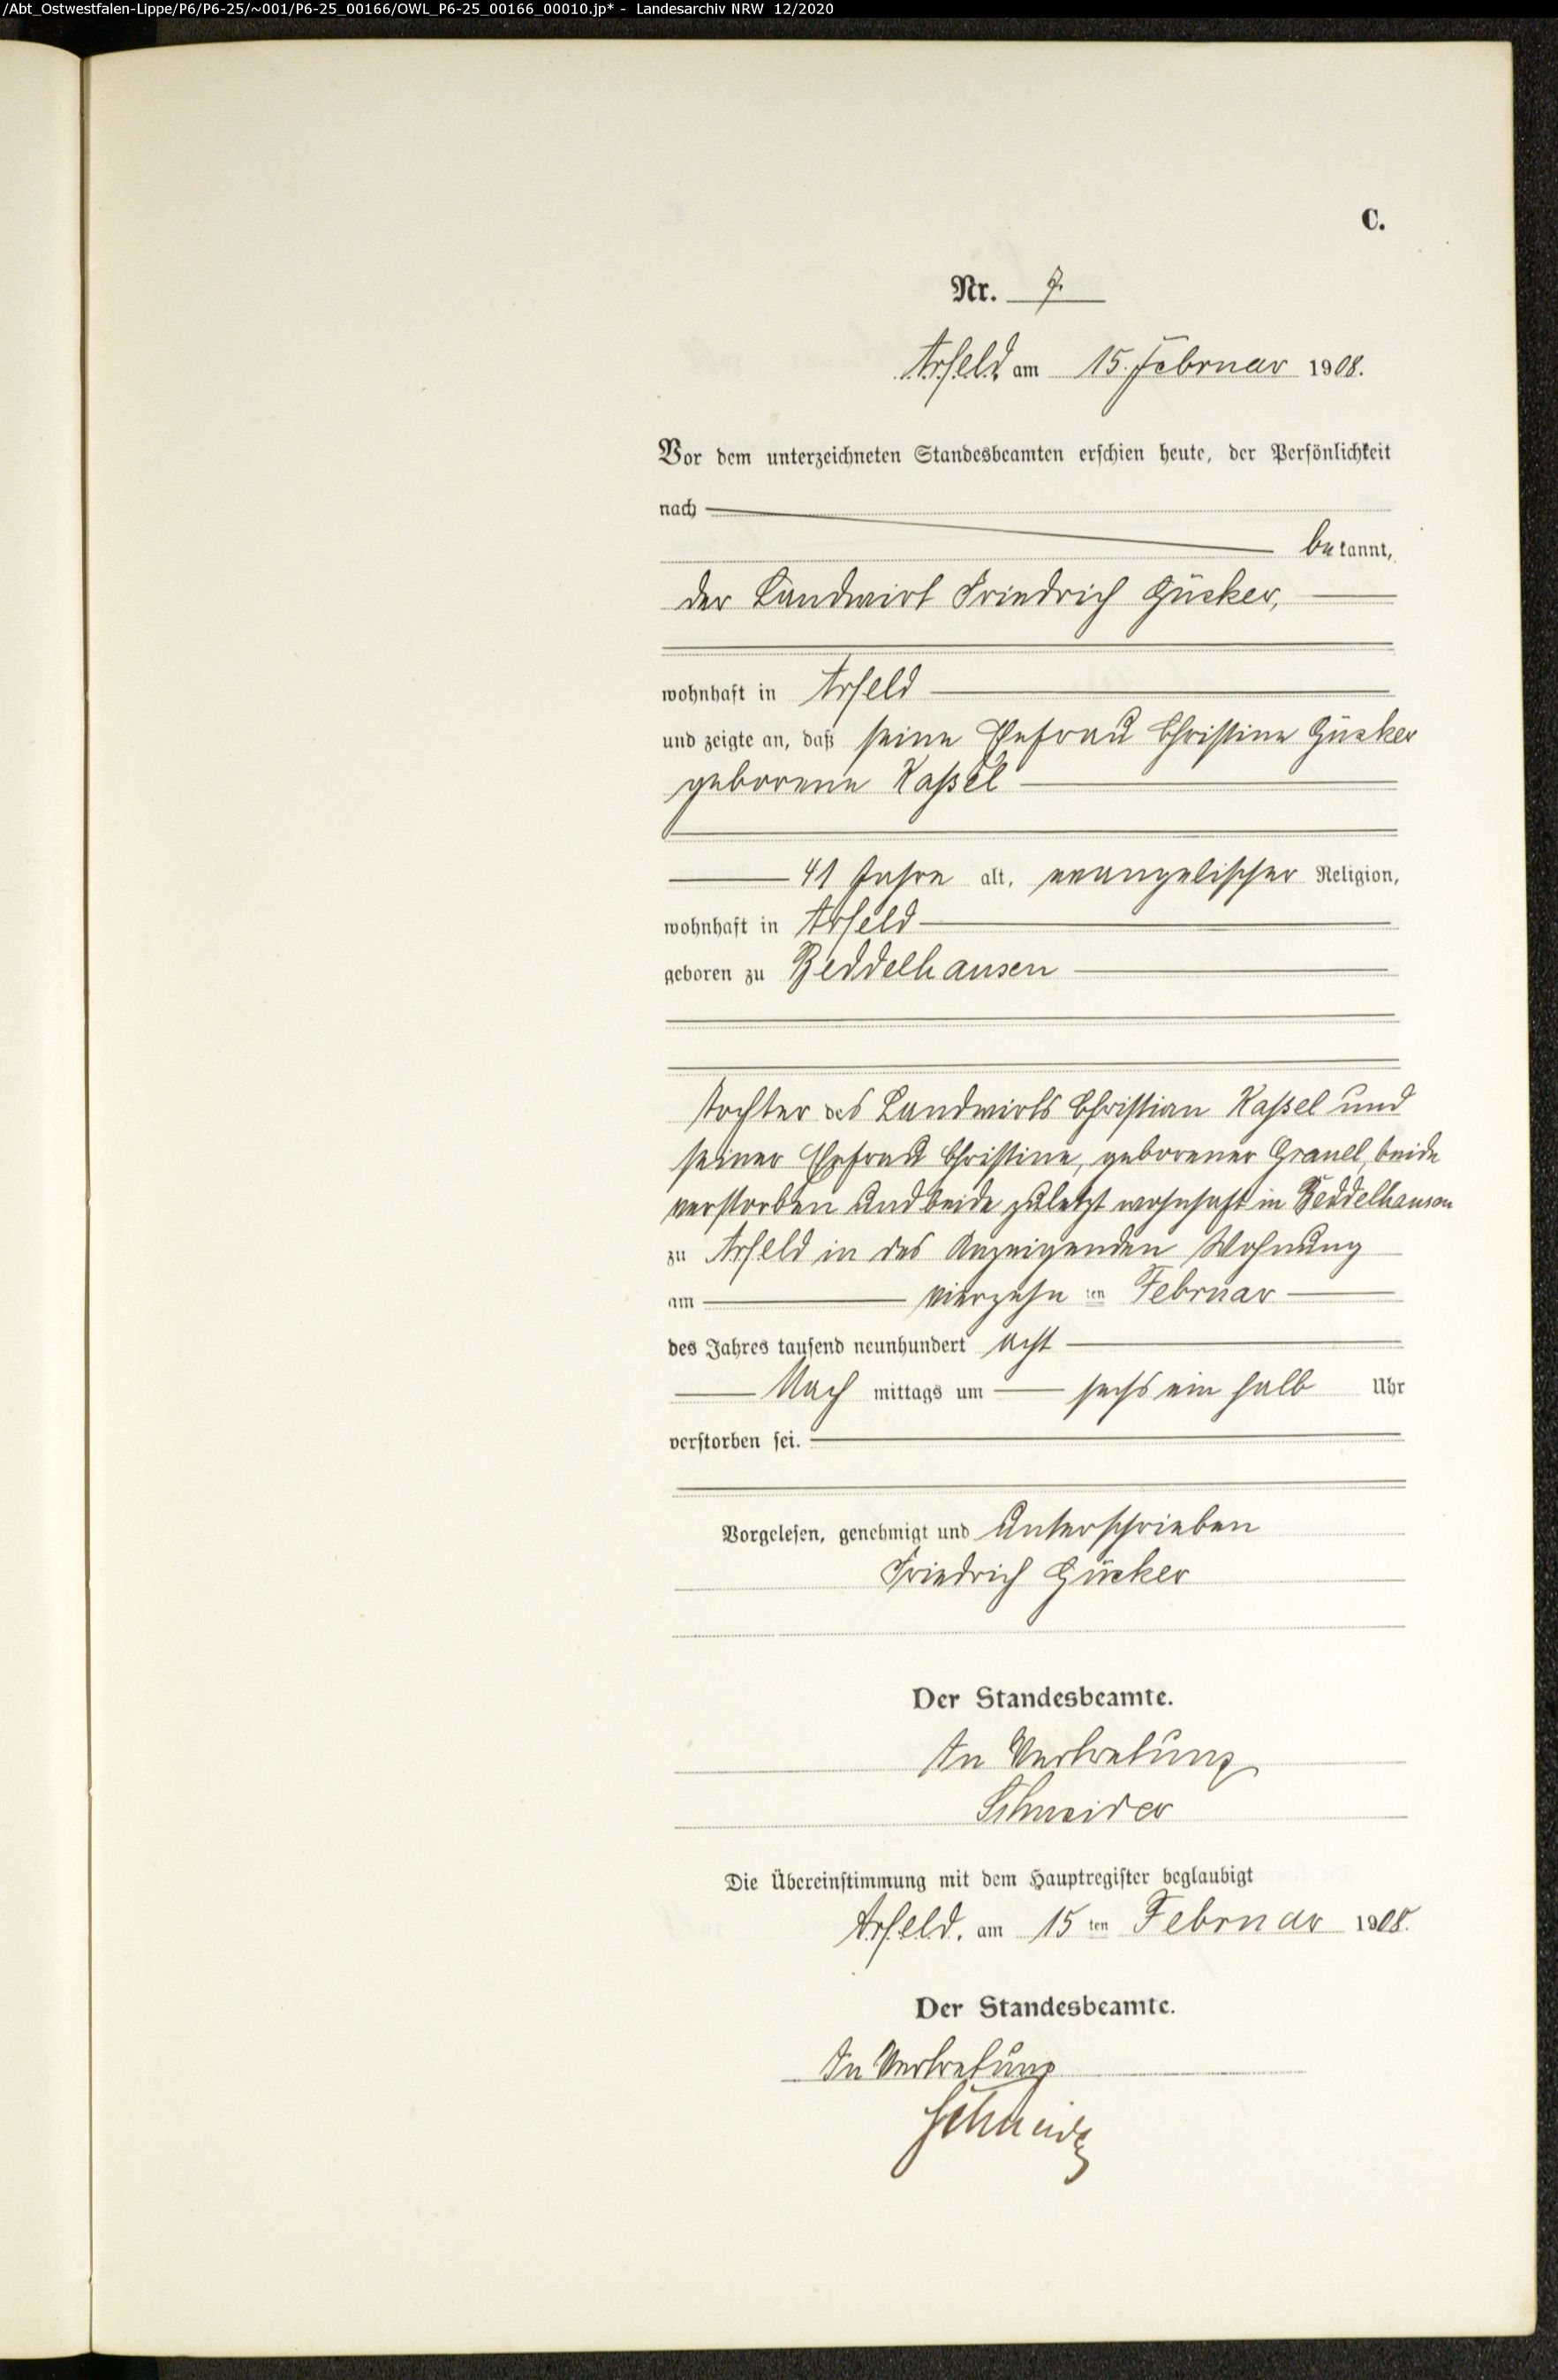 /Abt_Ostwestfalen-Lippe/P6/P6-25/~001/P6-25_00166/OWL_P6-25_00166_00010.jp* - Landesarchiv NRW 12/2020
C.
Nr. 7.
Arfeld am 15. Februar 1908.
Vor dem unterzeichneten Standesbeamten erschien heute, der Persönlichkeit
nach
bekannt,
der Landwirt Friedrich Gücker,
wohnhaft in Arfeld
und zeigte an, daß seine Ehefrau Christine Gücker
geborene Kaßel
41 Jahre alt, evangelischer Religion,
wohnhaft in Arfeld
geboren zu Beddelhausen
Tochter des Landwirts Christian Kaßel und
seiner Ehefrau Christine, geborener Grauel, beide
verstorben und beide zuletzt wohnhaft in Beddelhausen
zu Arfeld in des Anzeigenden Wohnung
am vierzehn ten Februar
des Jahres tausend neunhundert acht
Nach mittags um sechs ein halb Uhr
verstorben sei.
Vorgelesen, genehmigt und unterschrieben
Friedrich Gücker
Der Standesbeamte.
In Vertretung
Schneider
Die Übereinstimmung mit dem Hauptregister beglaubigt
Arfeld, am 15 ten Februar 1908.
Der Standesbeamte.
In Vertretung
Schneider